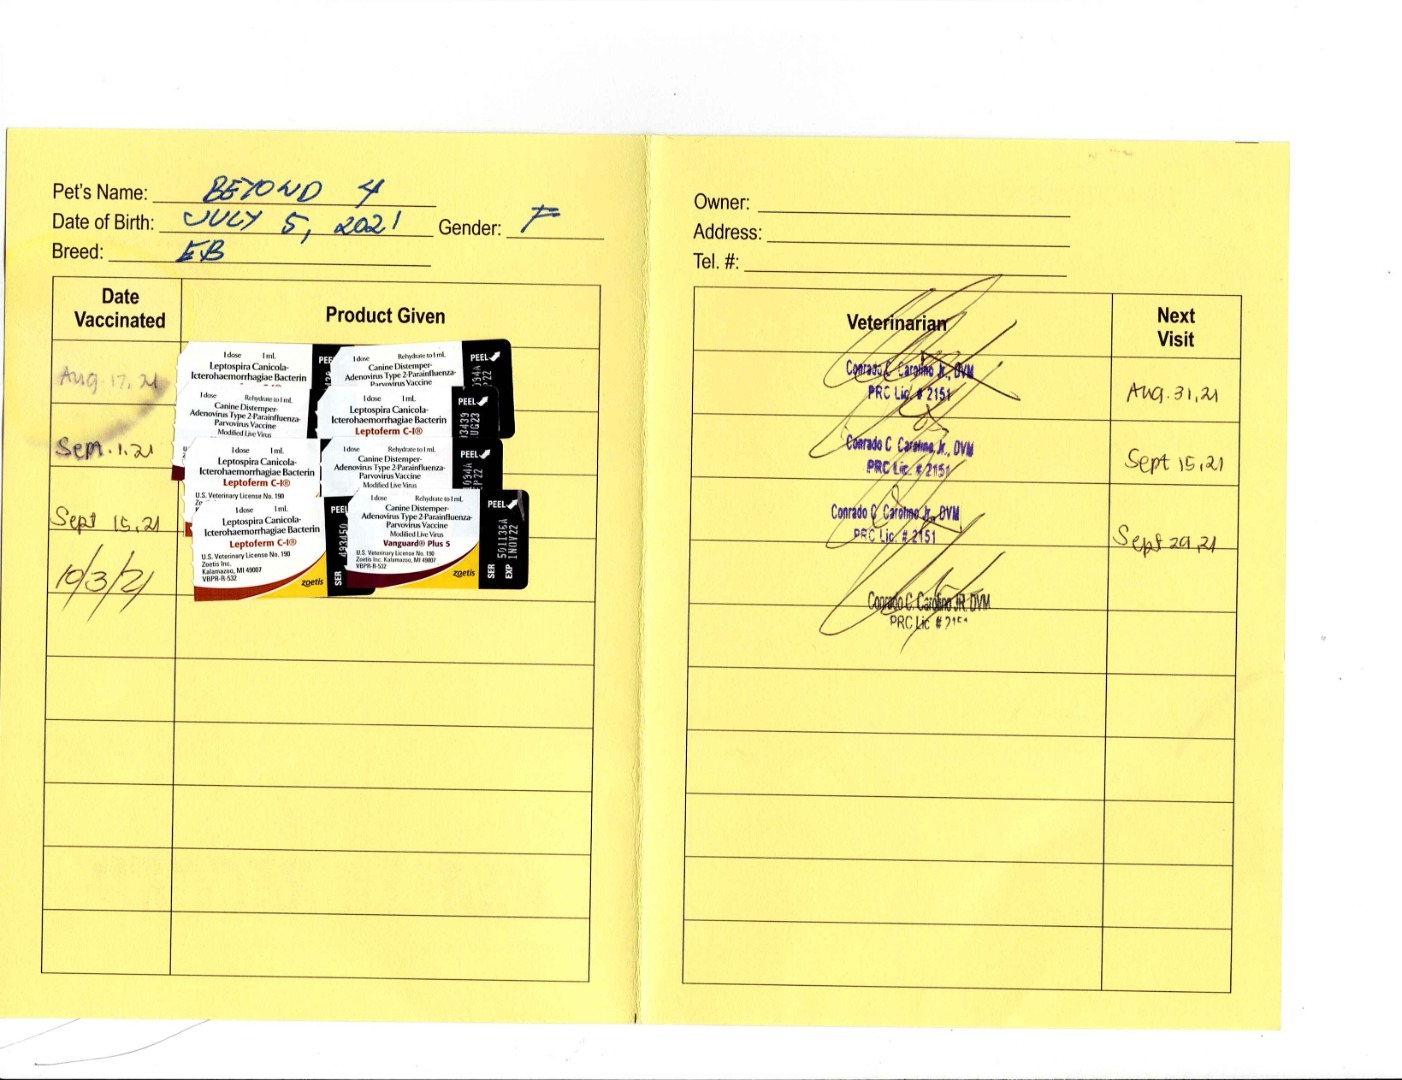 Pet's Name: BEYOND 4
Date of Birth: JULY 5, 2021 Gender: F
Breed: EB
Date Vaccinated
Product Given
Aug. 17, 21
Sept. 1, 21
Sept 15, 21
10/3/21
1 dose 1 mL
Leptospira Canicola-
Icterohaemorrhagiae Bacterin
PEE
1 dose Rehydrate to 1 mL
Canine Distemper-
Adenovirus Type 2-Parainfluenza-
Parvovirus Vaccine
PEEL
094A
P22
1 dose Rehydrate to 1 mL
Canine Distemper-
Adenovirus Type 2-Parainfluenza-
Parvovirus Vaccine
Modified Live Virus
1 dose 1 mL
Leptospira Canicola-
Icterohaemorrhagiae Bacterin
Leptoferm C-I®
PEEL
93439
UG23
1 dose 1 mL
Leptospira Canicola-
Icterohaemorrhagiae Bacterin
Leptoferm C-I®
U.S. Veterinary License No. 190
1 dose Rehydrate to 1 mL
Canine Distemper-
Adenovirus Type 2-Parainfluenza-
Parvovirus Vaccine
Modified Live Virus
PEEL
094A
P22
1 dose 1 mL
Leptospira Canicola-
Icterohaemorrhagiae Bacterin
Leptoferm C-I®
U.S. Veterinary License No. 190
Zoetis Inc.
Kalamazoo, MI 49007
VBPR-R-532
zoetis
PEEL
SER 493450
1 dose Rehydrate to 1 mL
Canine Distemper-
Adenovirus Type 2-Parainfluenza-
Parvovirus Vaccine
Modified Live Virus
Vanguard® Plus 5
U.S. Veterinary License No. 190
Zoetis Inc. Kalamazoo, MI 49007
VBPR-R-532
zoetis
PEEL
SER 501136A
EXP 11NOV22
Owner:
Address:
Tel. #:
Veterinarian
Next Visit
Conrado C. Carolino Jr., DVM
PRC Lic. # 2151
Aug. 31, 21
Conrado C. Carolino Jr., DVM
PRC Lic. # 2151
Sept 15, 21
Conrado C. Carolino Jr., DVM
PRC Lic. # 2151
Sept 29, 21
Conrado C. Carolino JR. DVM
PRC Lic #